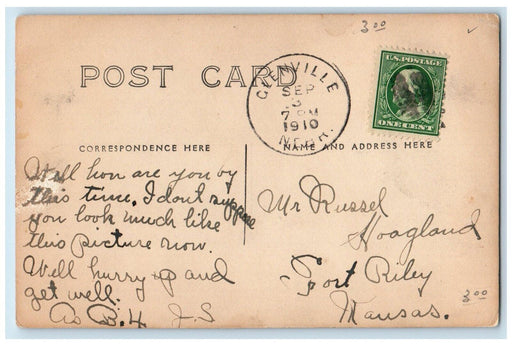 3.00
POST CARD
GLENVILLE
SEP
3
7 PM
1910
NEBR.
U.S. POSTAGE
ONE CENT
CORRESPONDENCE HERE
NAME AND ADDRESS HERE
Well how are you by
this time. I don't suppose
you look much like
this picture now.
Well hurry up and
get well.
As B.4 J.S
Mr Russel
Hoagland
Fort Riley
Kansas.
3.00